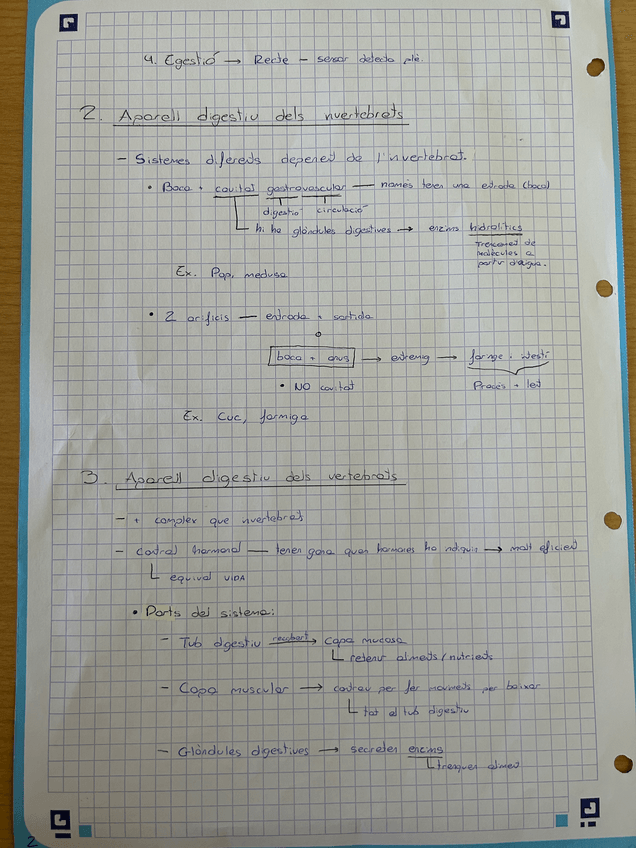 4. Egestió → Recte – sensor detecta ple.
2. Aparell digestiu dels invertebrats
– Sistemes diferents depenent de l'invertebrat.
• Boca + cavitat gastrovascular — només tenen una entrada (boca)
digestió circulació
hi ha glàndules digestives → enzims hidrolítics
Trencament de
molècules a
partir d'aigua.
Ex. Pop, medusa
• 2 orificis — entrada + sortida
boca + anus → entremig → faringe i intestí
• NO cavitat Procés + lent
Ex. Cuc, formiga
3. Aparell digestiu dels vertebrats
– + complex que invertebrats
– Control hormonal — tenen gana quan hormones ho indiquin → molt eficient
equival VIDA
• Parts del sistema:
– Tub digestiu recobert → Capa mucosa
retenir aliments / nutrients
– Capa muscular → contreu per fer moviments per baixar
tot el tub digestiu
– Glàndules digestives → secreten enzims
trenquen aliment
2